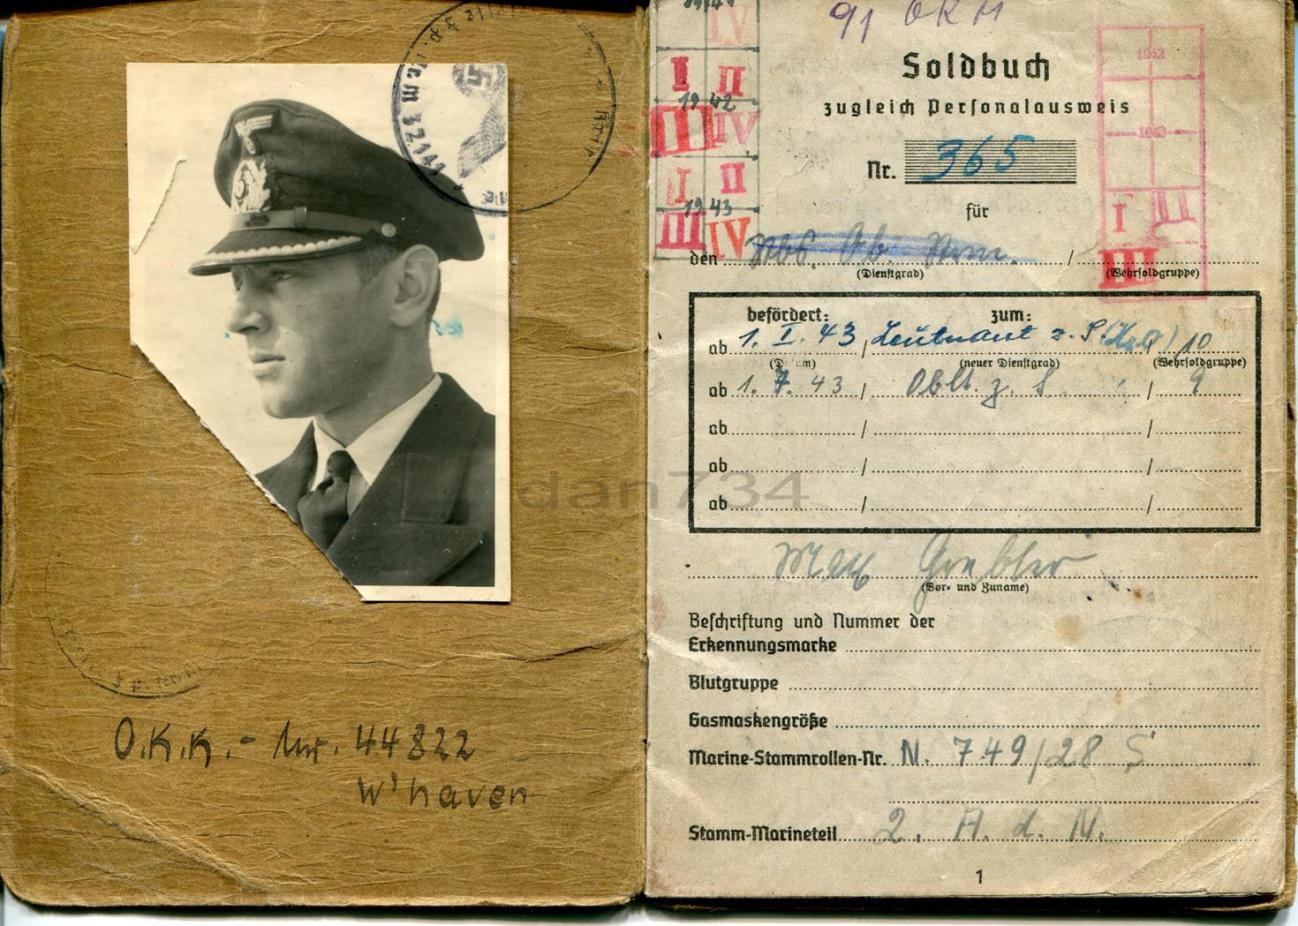 O.K.K.- Nr. 44822
W'haven
dan734
91 OKM
IV
I II
1942
III IV
I II
1943
III IV
1942
1943
I II
III
Soldbuch
zugleich Personalausweis
Nr. 365
für
den
(Dienstgrad) (Wehrsoldgruppe)
befördert: zum:
ab 1. I. 43 / Leutnant z. S. / 10
(Datum) (neuer Dienstgrad) (Wehrsoldgruppe)
ab 1. 7. 43 / Oblt. z. S. / 9
ab / /
ab / /
ab / /
Max
(Vor- und Zuname)
Beschriftung und Nummer der
Erkennungsmarke
Blutgruppe
Gasmaskengröße
Marine-Stammrollen-Nr. N. 749/28 S
Stamm-Marineteil 2. A. d. N.
1